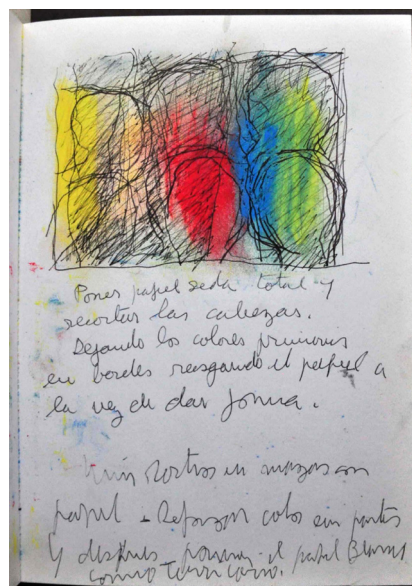 Poner papel seda total y
recortar las cabezas.
Dejando los colores primarios
en bordes rasgando el papel a
la vez de dar forma.
rostros en
papel - Reforzar color sin
y después poner el papel Blanco
como